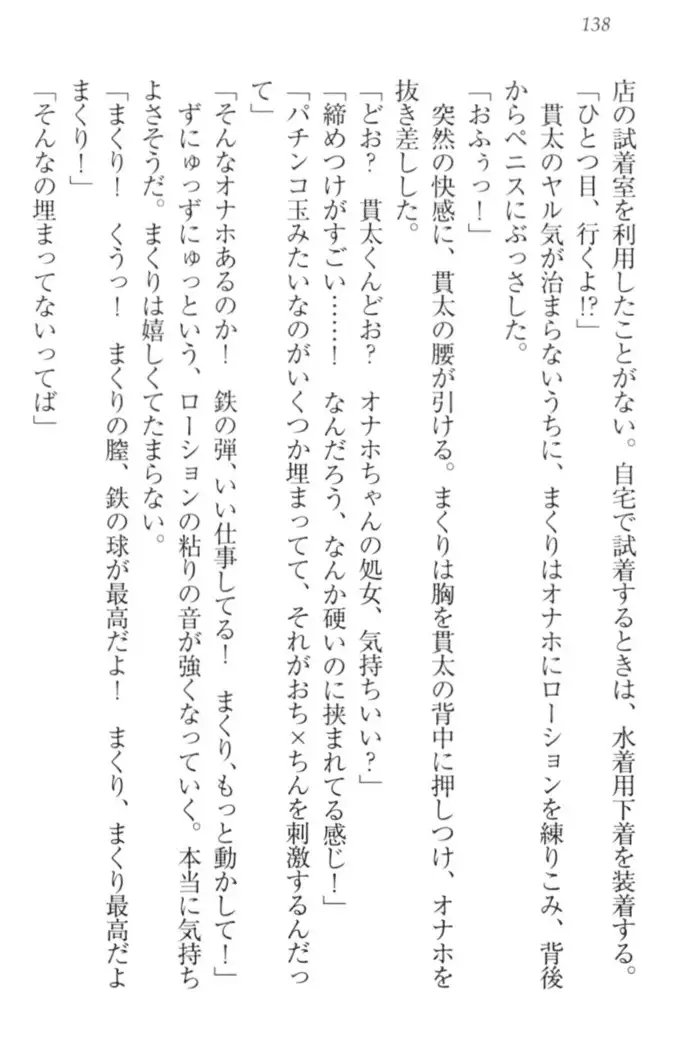 138
店の試着室を利用したことがない。自宅で試着するときは、水着用下着を装着する。
「ひとつ目、行くよ!?」
貫太のヤル気が治まらないうちに、まくりはオナホにローションを練りこみ、背後
からペニスにぶっさした。
「おふぅっ！」
突然の快感に、貫太の腰が引ける。まくりは胸を貫太の背中に押しつけ、オナホを
抜き差しした。
「どお？　貫太くんどお？　オナホちゃんの処女、気持ちいい？」
「締めつけがすごい……！　なんだろう、なんか硬いのに挟まれてる感じ！」
「パチンコ玉みたいなのがいくつか埋まってて、それがおち×ちんを刺激するんだっ
て」
「そんなオナホあるのか！　鉄の弾、いい仕事してる！　まくり、もっと動かして！」
ずにゅっずにゅっという、ローションの粘りの音が強くなっていく。本当に気持ち
よさそうだ。まくりは嬉しくてたまらない。
「まくり！　くうっ！　まくりの膣、鉄の球が最高だよ！　まくり、まくり最高だよ
まくり！」
「そんなの埋まってないってば」